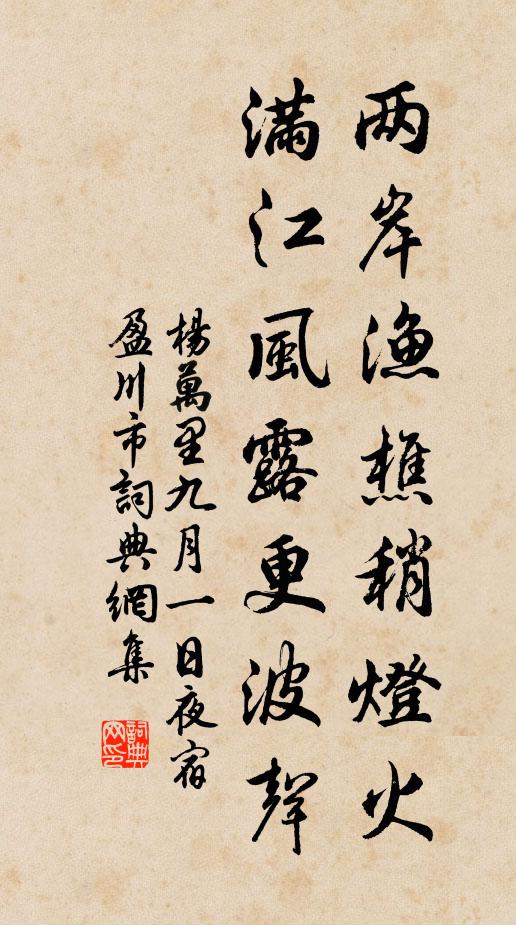 两岸漁樵稍燈火
滿江風露更波聲
楊萬里九月一日夜宿
盈川市詞典網集
詞典网印